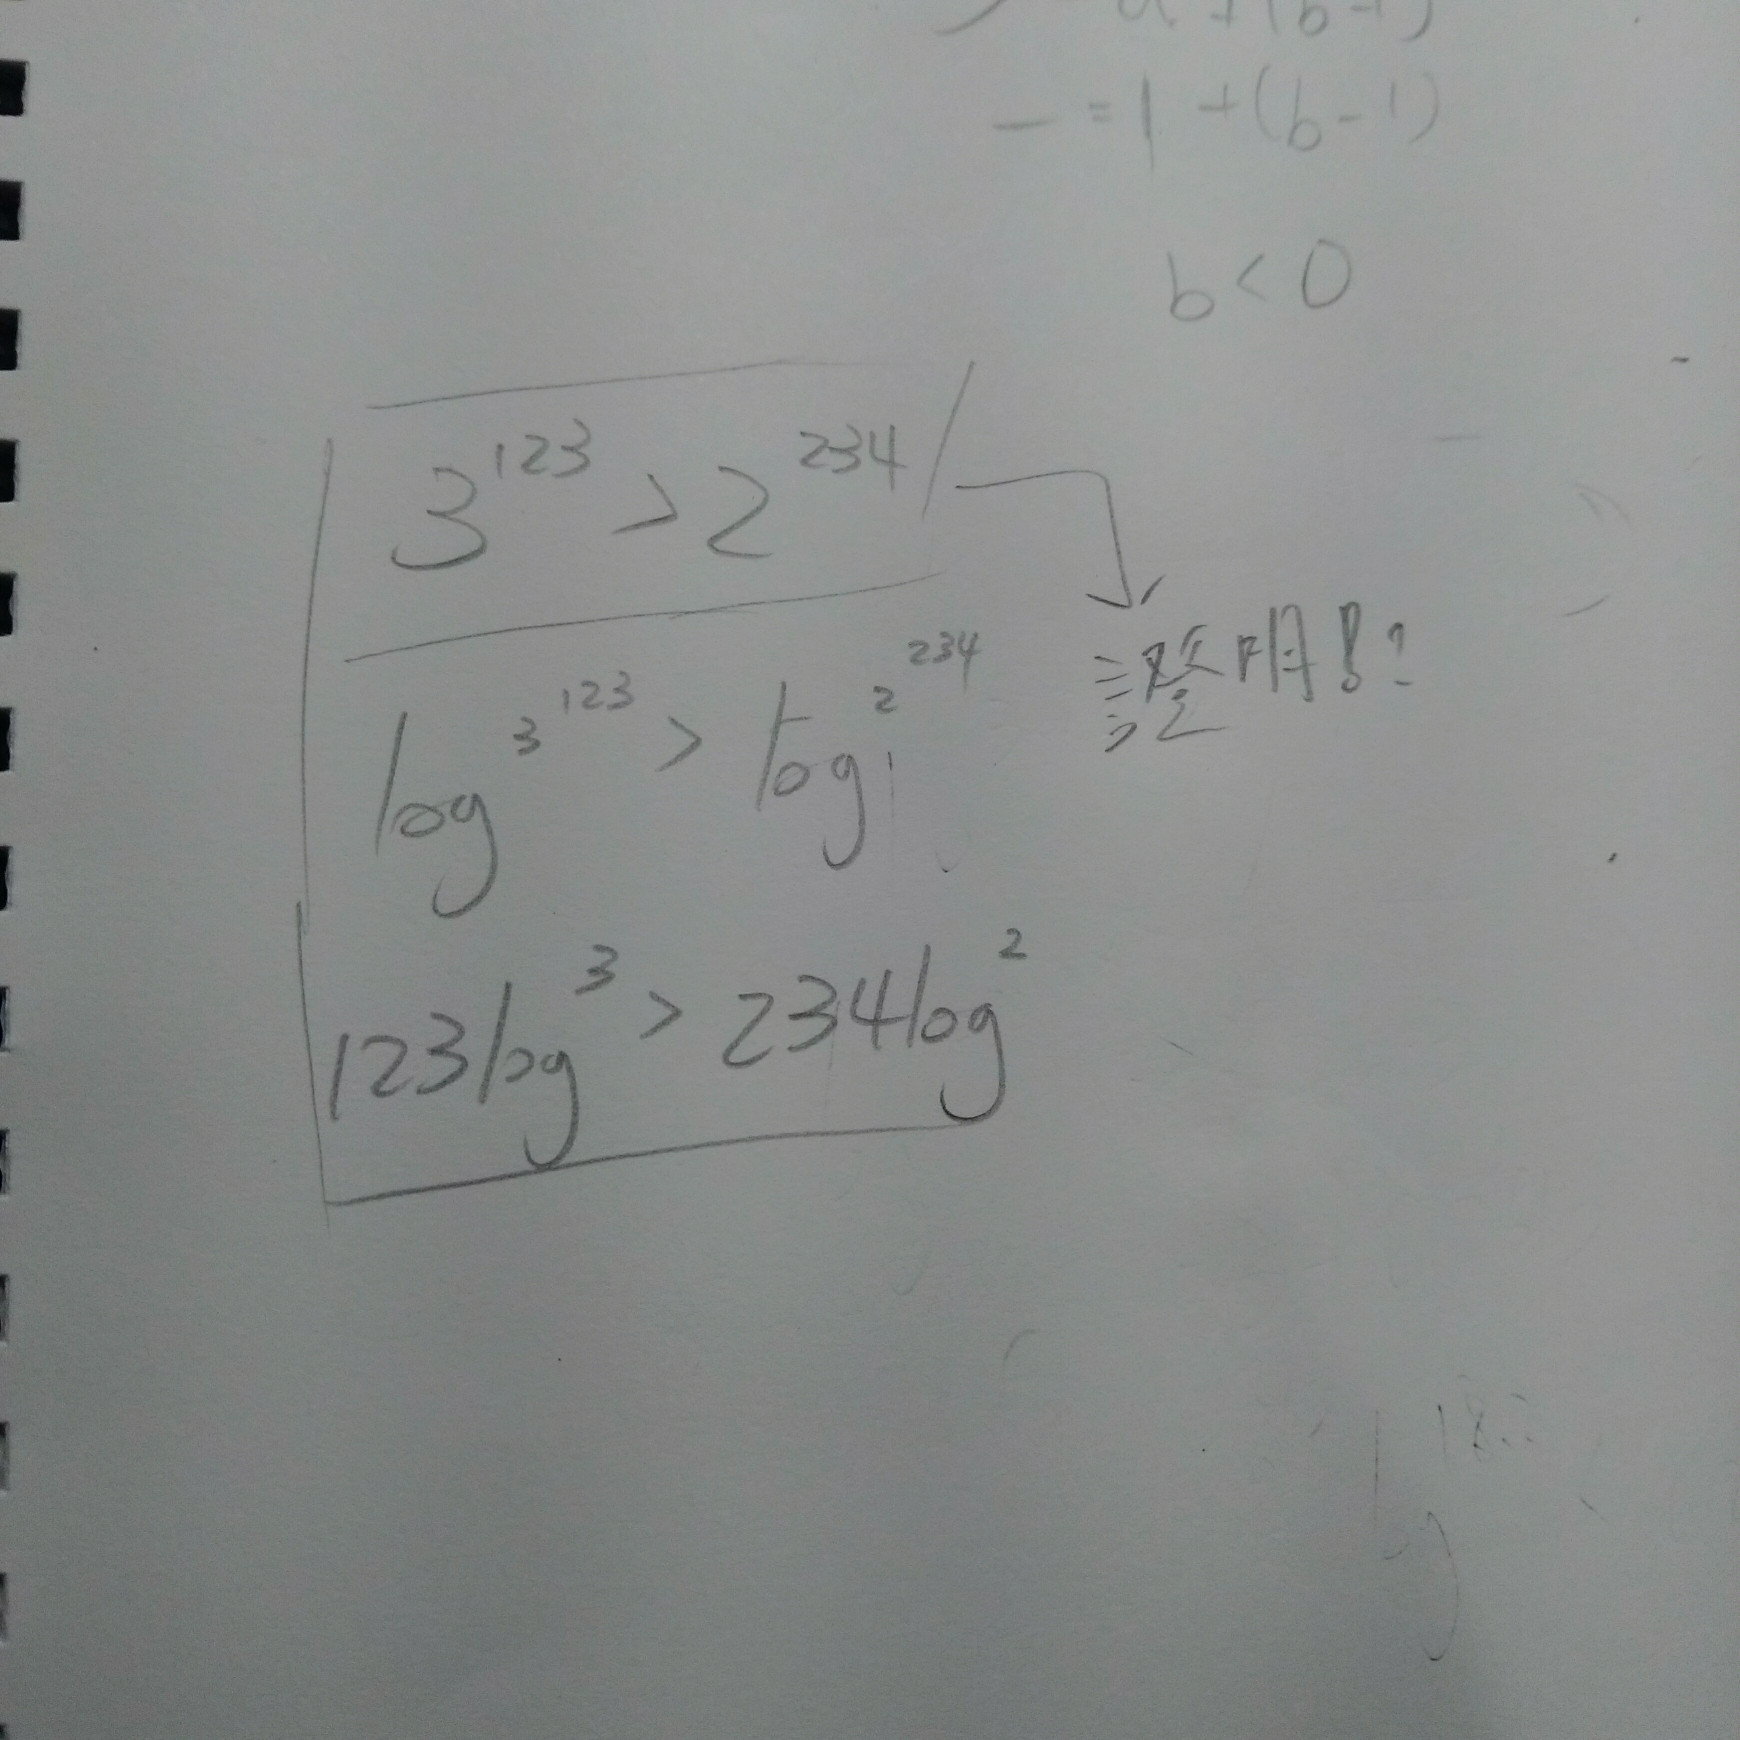 = 1 + (b - 1)
b < 0
3^123 > 2^234
證明!?
log 3^123 > log 2^234
123 log 3 > 234 log 2